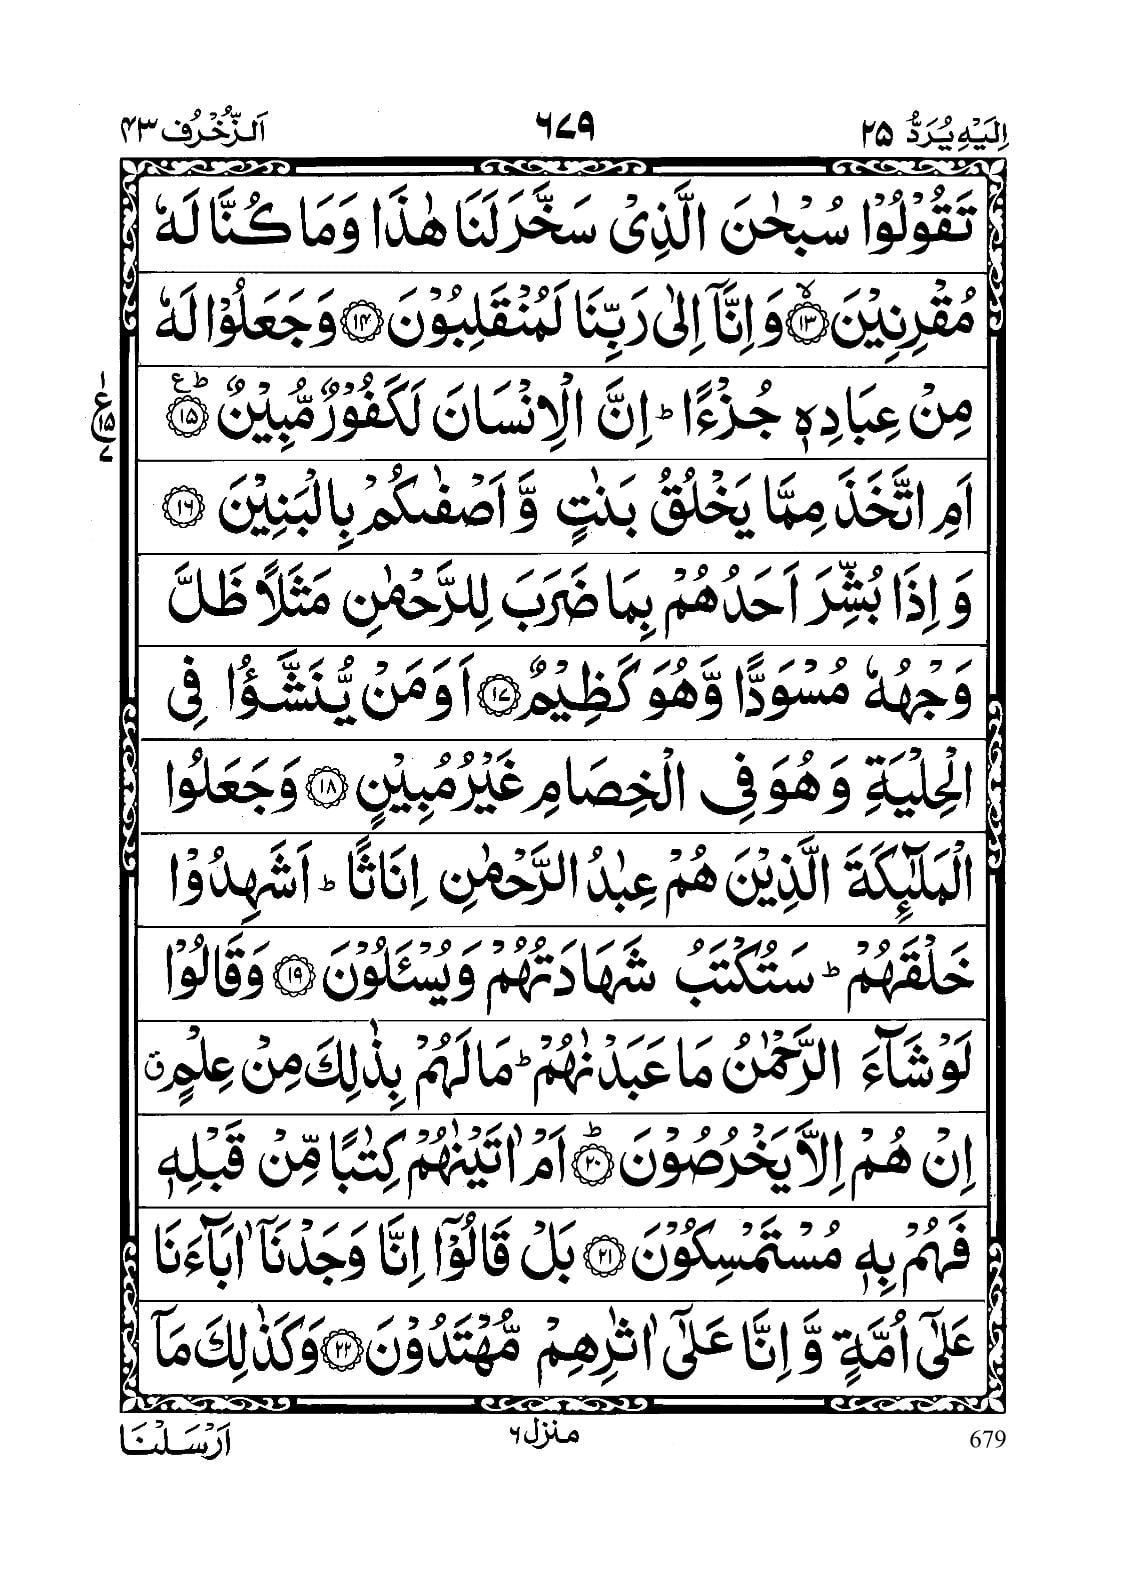 اِلَيْهِ يُرَدُّ ۲۵ ۶۷۹ اَلزُّخْرُف ۴۳
تَقُوْلُوْا سُبْحٰنَ الَّذِيْ سَخَّرَ لَنَا هٰذَا وَمَا كُنَّا لَهٗ
مُقْرِنِيْنَ ۙ‏﴿۱۳﴾ وَاِنَّآ اِلٰى رَبِّنَا لَمُنْقَلِبُوْنَ ﴿۱۴﴾ وَجَعَلُوْا لَهٗ
مِنْ عِبَادِهٖ جُزْءًا ؕ اِنَّ الْاِنْسَانَ لَكَفُوْرٌ مُّبِيْنٌ ؕ ع ﴿۱۵﴾
۱ ع ۱۵ ۷
اَمِ اتَّخَذَ مِمَّا يَخْلُقُ بَنٰتٍ وَّاَصْفٰىكُمْ بِالْبَنِيْنَ ﴿۱۶﴾
وَاِذَا بُشِّرَ اَحَدُهُمْ بِمَا ضَرَبَ لِلرَّحْمٰنِ مَثَلًا ظَلَّ
وَجْهُهٗ مُسْوَدًّا وَّهُوَ كَظِيْمٌ ﴿۱۷﴾ اَوَمَنْ يُّنَشَّؤُا فِى
الْحِلْيَةِ وَهُوَ فِى الْخِصَامِ غَيْرُ مُبِيْنٍ ﴿۱۸﴾ وَجَعَلُوا
الْمَلٰٓئِكَةَ الَّذِيْنَ هُمْ عِبٰدُ الرَّحْمٰنِ اِنَاثًا ؕ اَشَهِدُوْا
خَلْقَهُمْ ؕ سَتُكْتَبُ شَهَادَتُهُمْ وَيُسْـَٔلُوْنَ ﴿۱۹﴾ وَقَالُوْا
لَوْ شَآءَ الرَّحْمٰنُ مَا عَبَدْنٰهُمْ ؕ مَا لَهُمْ بِذٰلِكَ مِنْ عِلْمٍ ۗ
اِنْ هُمْ اِلَّا يَخْرُصُوْنَ ؕ﴿۲۰﴾ اَمْ اٰتَيْنٰهُمْ كِتٰبًا مِّنْ قَبْلِهٖ
فَهُمْ بِهٖ مُسْتَمْسِكُوْنَ ﴿۲۱﴾ بَلْ قَالُوْٓا اِنَّا وَجَدْنَآ اٰبَآءَنَا
عَلٰٓى اُمَّةٍ وَّاِنَّا عَلٰٓى اٰثٰرِهِمْ مُّهْتَدُوْنَ ﴿۲۲﴾ وَكَذٰلِكَ مَآ
679 منزل ۶ اَرْسَلْنَا